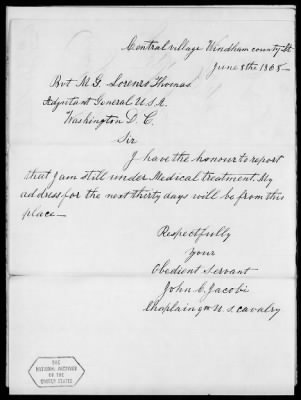 Central village Windham county Ct
June 8the 1868-
Bvt M. G. Lorenzo Thomas
Adjutant General U.S.A.
Washington D. C.
Sir
I have the honour to report
that I am still under Medical treatment. My
address for the next thirty days will be from this
place-
Respectfully
Your
Obedient Servant
John C. Jacobi
Chaplain 9th U. S. Cavalry
THE
NATIONAL ARCHIVES
OF THE
UNITED STATES